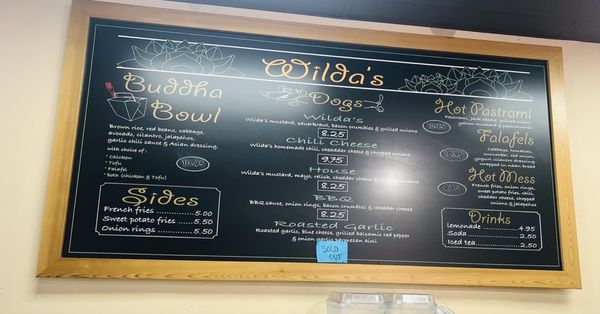 Wilda's
Buddha
Bowl
Brown rice, red beans, cabbage,
avocado, cilantro, jalapeños,
garlic chili sauce & Asian dressing
with choice of:
• Chicken
• Tofu
• Falafel
• both (chicken & Tofu)
Sides
French fries 5.00
Sweet potato fries 5.50
Onion rings 5.50
Dogs
Wilda's
Wilda's mustard, sauerkraut, bacon crumbles & grilled onions
8.25
Chili Cheese
Wilda's homemade chili, cheddar cheese & chopped onions
9.75
House
Wilda's mustard, mayo, relish, cheddar cheese & chopped onions
8.25
BBQ
BBQ sauce, onion rings, bacon crumbles & cheddar cheese
8.25
Roasted Garlic
Roasted garlic, blue cheese, grilled balsamic red pepper
& onion garlic parmesan aioli
SOLD
OUT
Hot Pastrami
Pastrami, jack cheese, grilled onions,
yellow mustard & pepperoncinis
Falafels
Cabbage, tomatoes,
cucumber, red onion,
yogurt cilantro dressing
wrapped in naan bread
Hot Mess
French fries, onion rings,
sweet potato fries, chili,
cheddar cheese, chopped
onions & jalapeños
Drinks
Lemonade 4.95
Soda 2.50
Iced tea 2.50